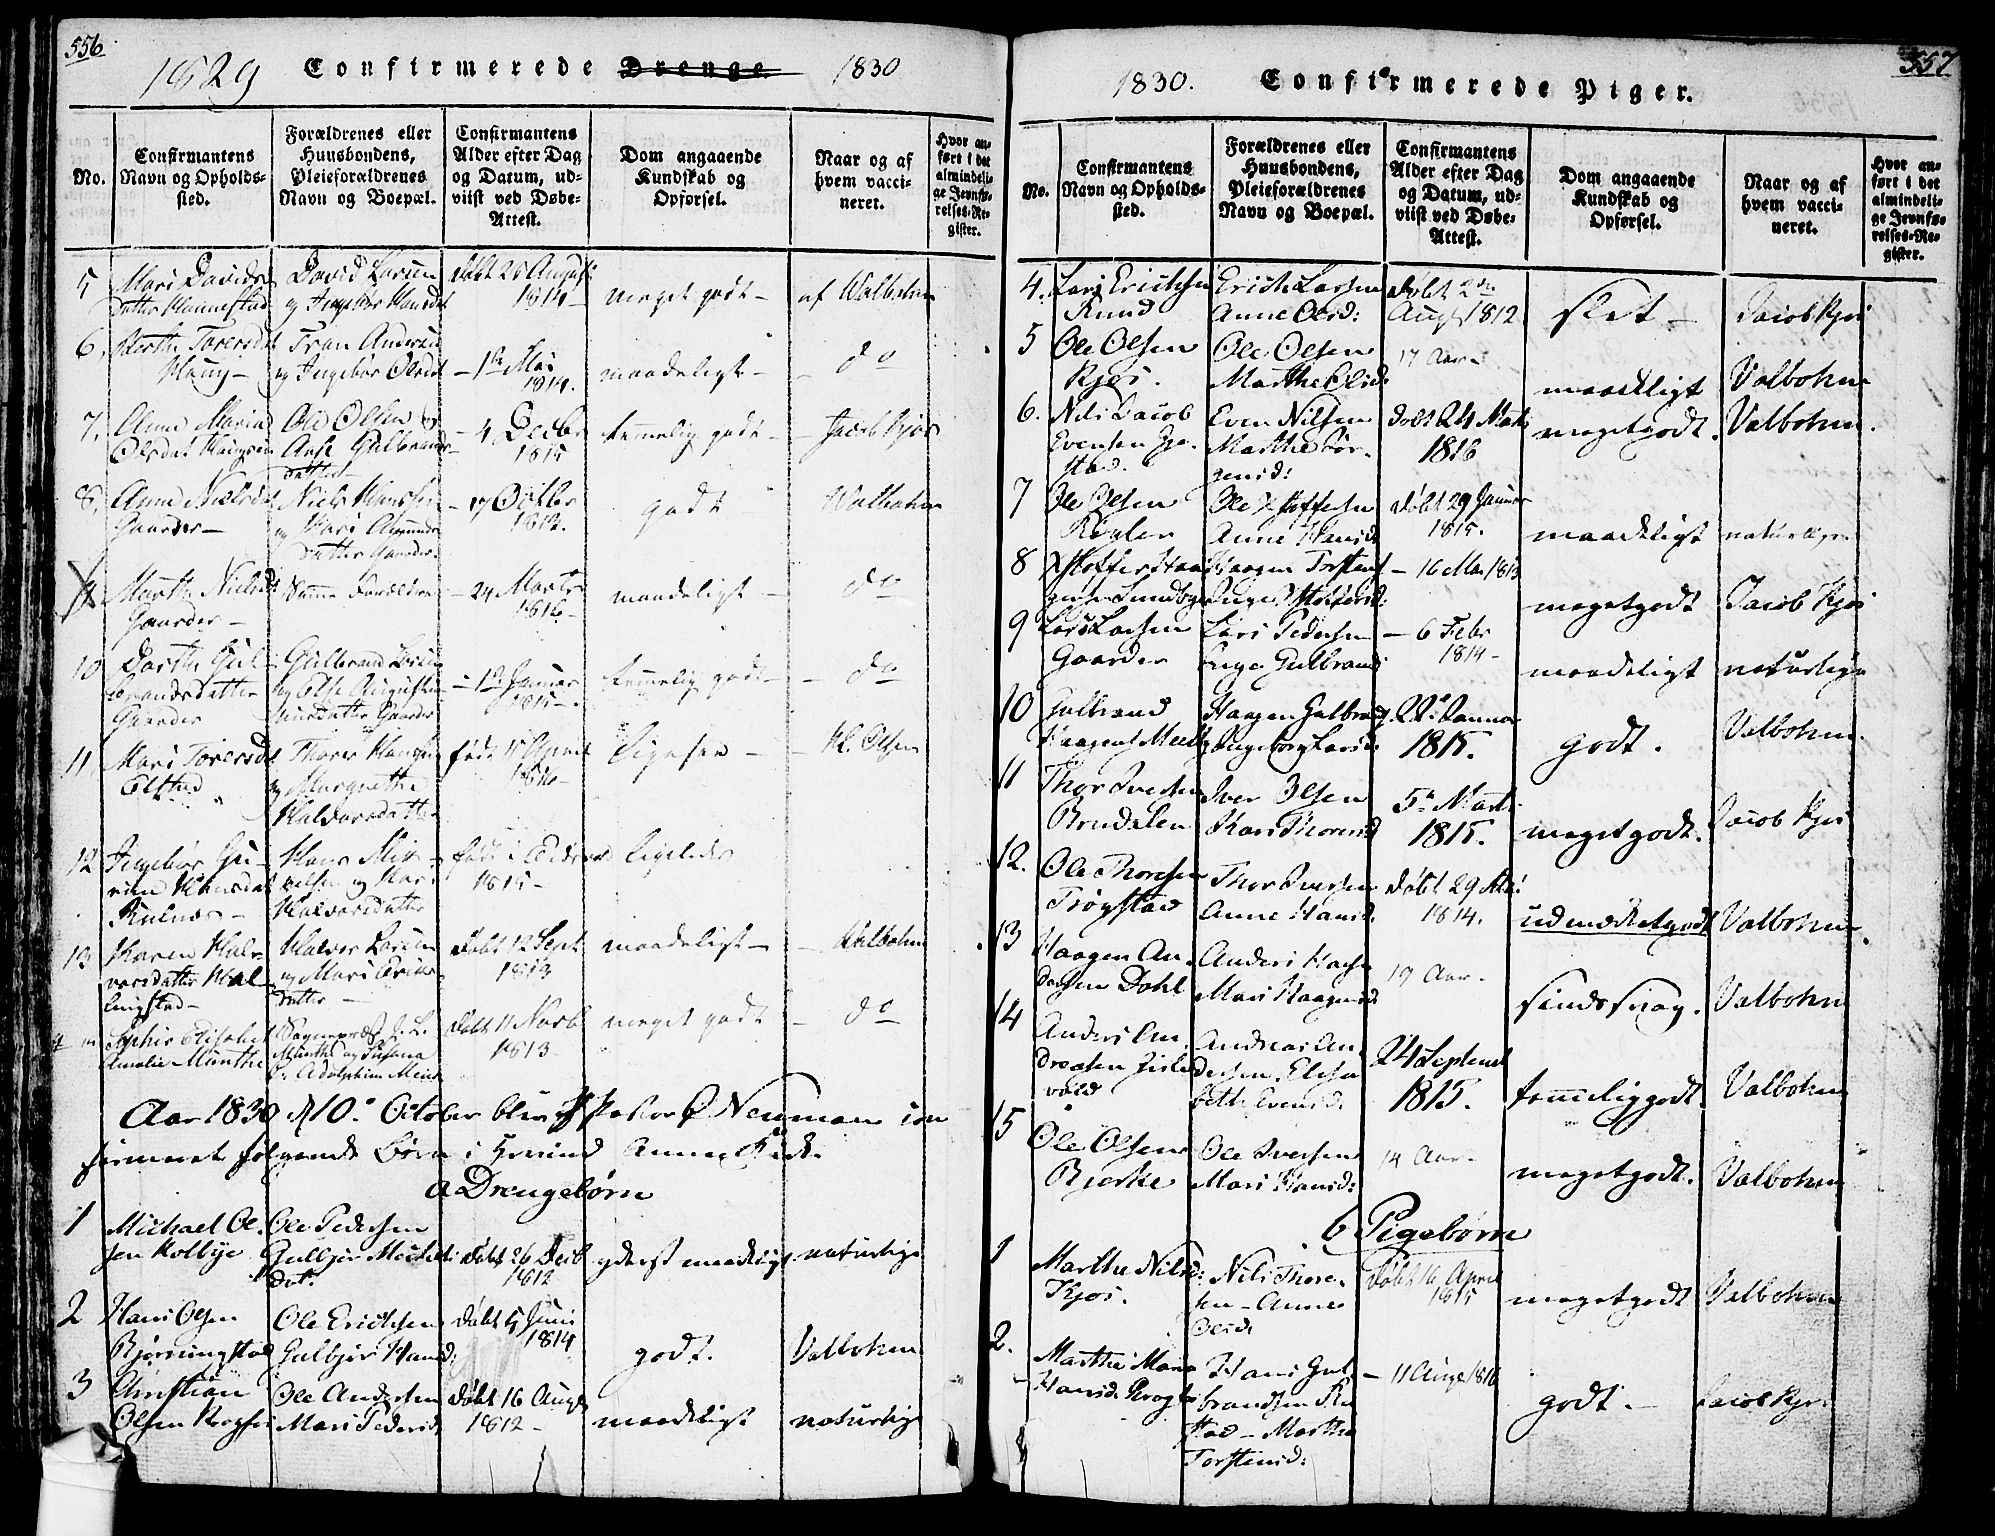 556
1829 Confirmerede Drenge 1830
No.
Confirmantens
Navn og Opholds-
sted.
Forældrenes eller
Huusbondens,
Pleieforældrenes
Navn og Boepæl.
Confirmantens
Alder efter Dag
og Datum, ud-
viist ved Døbe-
Attest.
Dom angaaende
Kundskab og
Opførsel.
Naar og af
hvem vacci-
neret.
Hvor an-
ført i det
almindeli-
ge Jevnfø-
relses-Re-
gister.
5 Mari Davids
datter
David Larsen
og Ingebor
Døbt 28 August
1814
meget godt
af Walbohm
6
og Ingebor Olsdat
1te Mai
1814.
maadeligt
do
7. Anne Maria
Olsdat
Ole Olsen
Gulbrands
datter
4 Decbr
1815
temmelig godt
Jacob Kjos
8. Anne Nielsdat
Gaarder
Niels Hansen
og Kari
datter Gaarder
17 Octbr
1812.
godt
Walbohm
9 Marthe Nielsdt
Gaarder
Samme Forældre
24 Marts
1816
maadeligt
do
10 Dorthe Gul-
brandsdatter
Gaarder
Gulbrand Larsen
og Else
Gaarder
1te Januar
1815
temmelig godt
do
11. Mari Toresdt
Elstad
Thorer Hansen
og Margrethe
Halvorsdatter
født
1816
ligesaa
Kl. Olsen
12 Ingebor
Hansdat
Hans Mik-
kelsen og Kari
Halvorsdatter
født i
1815
ligeledes
13 Karen Hal-
vorsdatter
lingstad
Halvor Larsen
og Mari
datter
Døbt 12 Sept
1813
maadeligt
Walbohm
Sophie Elisabet
Amalie Münthe
Münthe og Susana
Døbt 11 Novb
1813
meget godt
do
Aar 1830 d 10. October blev af Pastor Neumann con
firmeret følgende Børn i Hovind Annex Kirke
a Drengebørn
1 Michael Ol-
sen Kolbye
Ole Pedersen
Gulbjør Michels
dat.
Døbt 26 Decb
1812
yderst maadeligt
naturlige
2 Hans Olsen
Bjørningstad
Ole Erichsen
Gulbjør Hansd:
Døbt 5 Juni
1814
godt.
Valbohm
3 Christian
Olsen
Ole Andersen
Mari Pedersd:
Døbt 16 Augs
1812
maadeligt
naturlige
557
1830. Confirmerede Piger.
No.
Confirmantens
Navn og Opholds-
sted.
Forældrenes eller
Huusbondens,
Pleieforældrenes
Navn og Boepæl.
Confirmantens
Alder efter Dag
og Datum, ud-
viist ved Døbe-
Attest.
Dom angaaende
Kundskab og
Opførsel.
Naar og af
hvem vacci-
neret.
Hvor an-
ført i det
almindeli-
ge Jevnfø-
relses-Re-
gister.
4. Lars Erichsen
Ruud
Erich Larsen
Anne Olsd:
Døbt 2den
Aug 1812
slet
Jacob Kjos
5 Ole Olsen
Kjos.
Ole Olsen
Marthe Olsd:
17 Aar
maadeligt
Valbohm
6. Nils Jacob
Evensen
stad.
Even Nilsen
Marthe Jør-
gensd:
Døbt 24 Marts
1816
megetgodt.
Valbohm.
7 Ole Olsen
Røgler
Anne Hansd:
Døbt 29 Januar
1815.
maadeligt
naturlige
8
Lundbye
Haagen Torstens
Inger
16 Mai 1813
megetgodt
Jacob Kjos
9 Lars Larsen
Gaarder
Lars Pedersen
Inge Gulbrands
6 Febr
1814
maadeligt
naturlige
10 Gulbrand
Haagens
Haagen Gulbrands
Ingeborg Larsd:
22. Januar
1815.
godt.
Valbohm.
11 Thor Iversen
Brudalen
Iver Olsen
Kari Thoresd
5. Marts
1815.
megetgodt.
Jacob Kjos
12. Ole Thoresen
Trøgstad
Thor Iversen
Anne Hansd.
Døbt 29 Mai
1814.
udmærketgodt
Valbohm.
13 Haagen An-
dersen Dahl
Anders
Mari Haagensd
19 Aar
sindssvag.
Valbohm
14 Anders An-
dreasen
vold
Andreas An-
dersen. Elisa
beth Evensd:
24 Septembr
1815.
temeliggodt.
Valbohm
15 Ole Olsen
Bjerke
Ole Iversen
Mari Hansd:
14 Aar
megetgodt.
Valbohm
b Pigebørn
1 Marthe Nilsd:
Kjos.
Nils Thore-
sen - Anne
Olsd:
Døbt 16 April
1815
megetgodt
Valbohm
2. Marthe Marie
Hansd.
Hans Gul
brandsen
stad - Marthe
Torstensd:
11 Aug 1816
godt.
Jacob Kjos